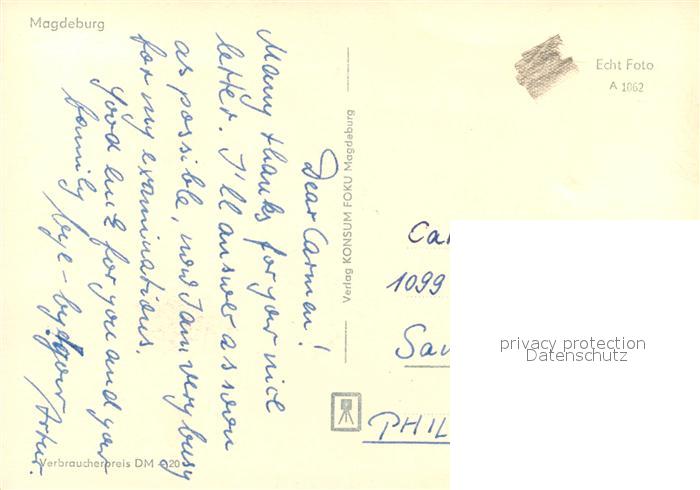 Magdeburg
Dear Carmen!
Many thanks for your nice
letter. I'll answer as soon
as possible, now I am very busy
for my examinations.
Good luck for you and your
family bye-bye your Artur.
Verbraucherpreis DM -,20
Verlag KONSUM FOKU Magdeburg
Echt Foto
A 1062
Car
1099
Sau
PHIL
privacy protection
Datenschutz